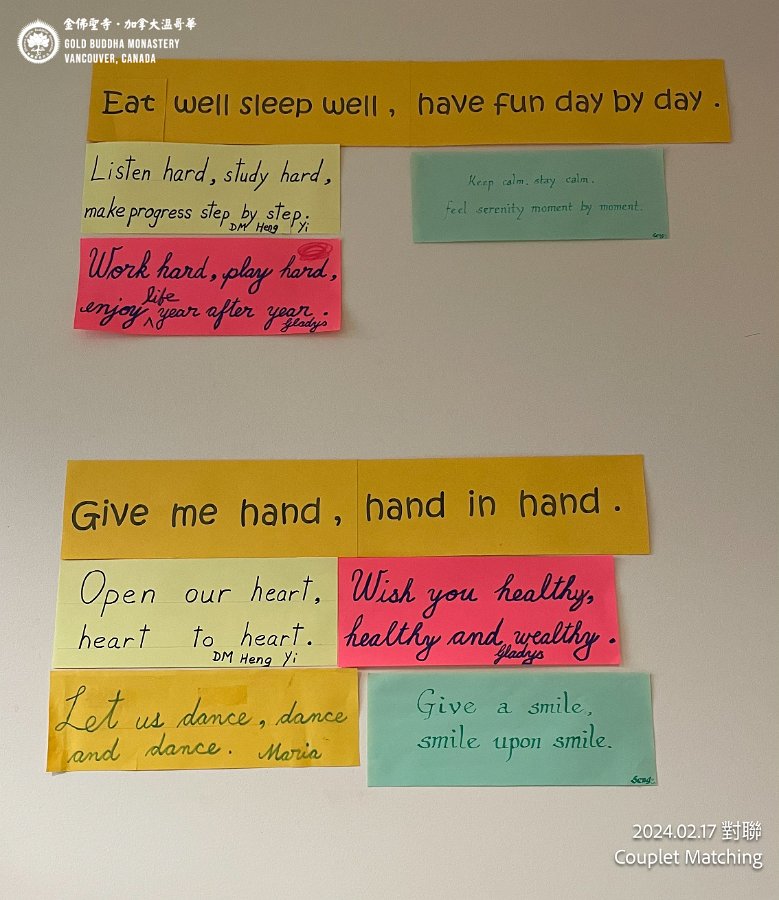 金佛聖寺·加拿大溫哥華
GOLD BUDDHA MONASTERY
VANCOUVER, CANADA
Eat well sleep well, have fun day by day.
Listen hard, study hard,
make progress step by step.
DM Heng Yi
Keep calm, stay calm,
feel serenity moment by moment.
Seng
Work hard, play hard,
enjoy life year after year.
Gladys
Give me hand, hand in hand.
Open our heart,
heart to heart.
DM Heng Yi
Wish you healthy,
healthy and wealthy.
Gladys
Let us dance, dance
and dance. Maria
Give a smile,
smile upon smile.
Seng
2024.02.17 對聯
Couplet Matching